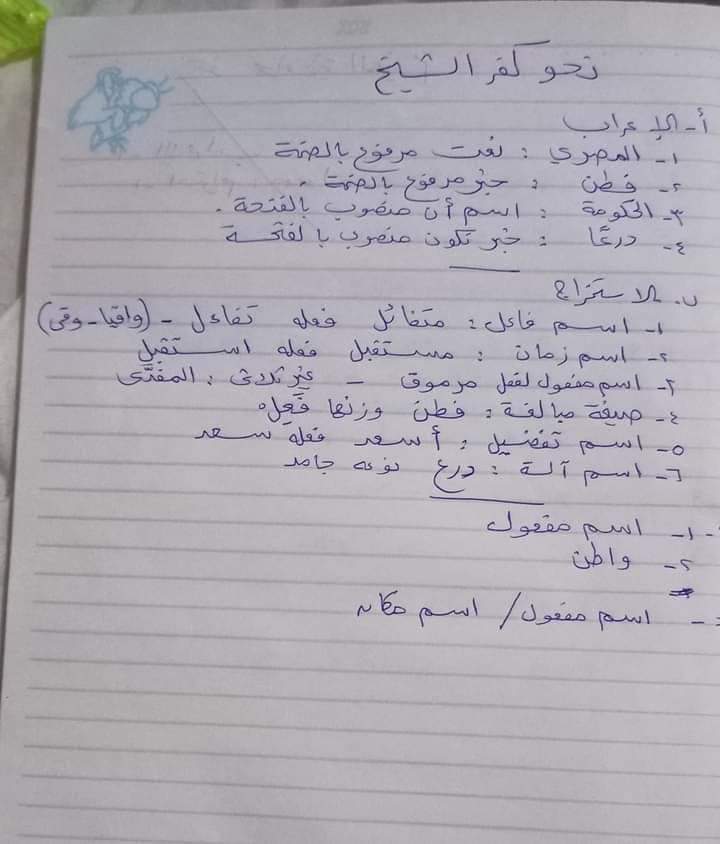 نحو كفر الشيخ
أ- الإعراب
١- المصري : نعت مرفوع بالضمة
٢- فطن : خبر مرفوع بالضمة .
٣- الحكومة : اسم أن منصوب بالفتحة .
٤- درعًا : خبر تكون منصوب بالفتحة
ب. الاستخراج
١- اسم فاعل : متفائل فعله تفاءل - (واقيا - وقى)
٢- اسم زمان : مستقبل فعله استقبل
٣- اسم مفعول لفعل مرموق - غير ثلاثى : المفدّى
٤- صيغة مبالغة : فطن وزنها فَعِل
٥- اسم تفضيل : أسعد فعله سعد
٦- اسم آلة : درع نوعه جامد
١- اسم مفعول
٢- واطن
- اسم مفعول / اسم مكان